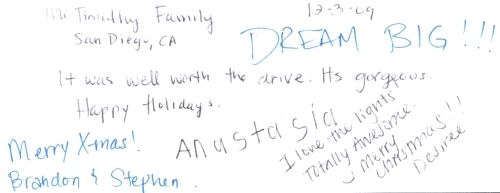 The Timothy Family
San Diego, CA
12-3-09
DREAM BIG!!!
It was well worth the drive. Its gorgeous.
Happy Holidays.
Merry X-mas!
Brandon & Stephen.
Anastasia
I love the lights
Totally Awesome.
Merry
Christmas!!
Desiree